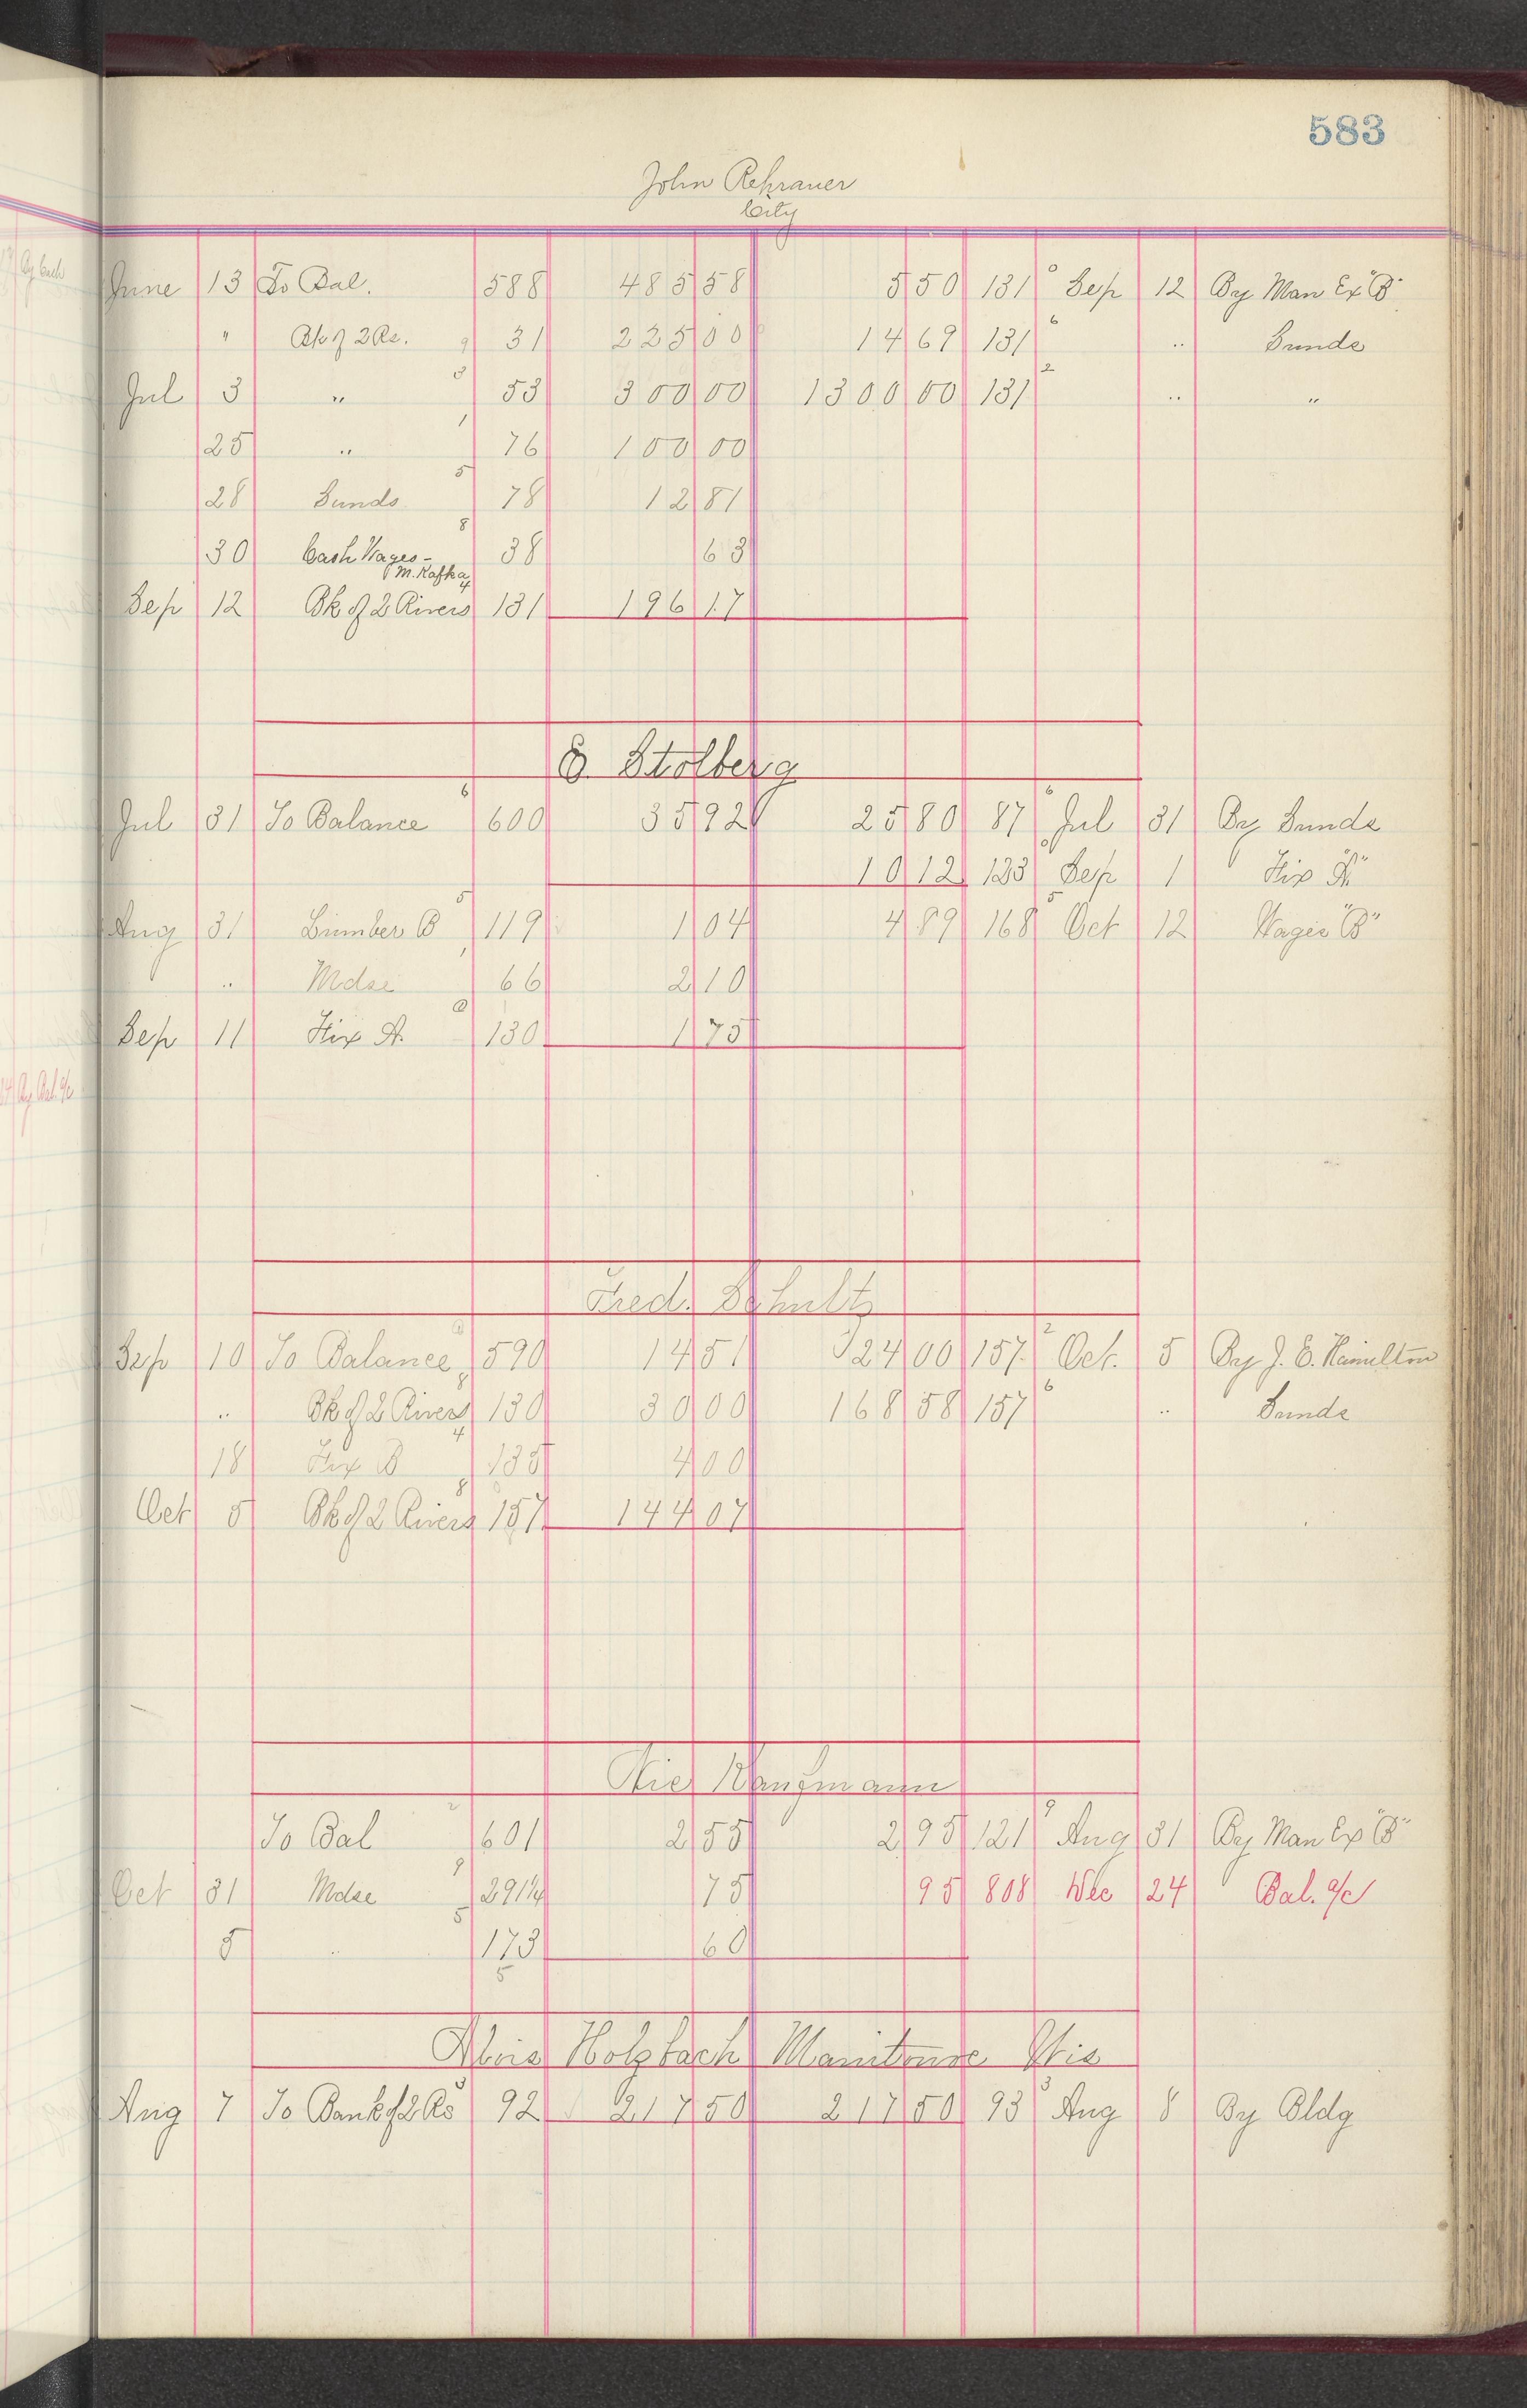 583
John Rehrauer
City
June 13 To Bal. 588 485 58 5 50 131 Sep 12 By Man Ex "B"
" Bk of 2 Rs. 9 31 225 00 14 69 131 6 " Sunds
Jul 3 " 3 53 300 00 1300 00 131 2 " "
25 " 1 76 100 00
28 Sunds 5 78 12 81
30 Cash Wages - 8 38 63
M. Kafka
Sep 12 Bk of 2 Rivers 4 131 196 17
Stolberg
Jul 31 To Balance 6 600 35 92 25 80 87 6 Jul 31 By Sunds
10 12 133 Sep 1 Fix "A"
Aug 31 Lumber B 5 119 1 04 4 89 168 5 Oct 12 Wages "B"
" Mdse 66 2 10
Sep 11 Fix A. 130 1 75
Fred. Schultz
Sep 10 To Balance 590 14 51 24 00 157 2 Oct. 5 By J. E. Hamilton
" Bk of 2 Rivers 130 30 00 168 58 157 6 " Sunds
18 Fix B 4 135 4 00
Oct 5 Bk of 2 Rivers 8 157 144 07
Nic Kaufmann
To Bal 601 2 55 2 95 121 9 Aug 31 By Man Ex "B"
Oct 31 Mdse 9 291 1/4 75 95 808 Dec 24 Bal. a/c
5 " 5 173 60
5
Alois Holzbach Manitowoc Wis
Aug 7 To Bank of 2 Rs 3 92 217 50 217 50 93 3 Aug 8 By Bldg